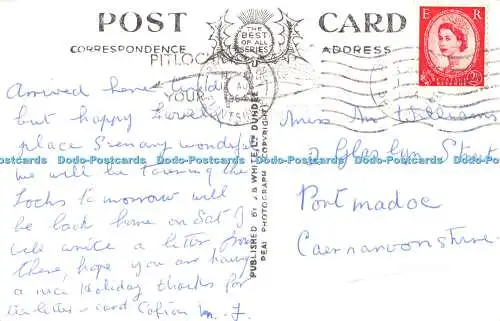 POST CARD
THE
BEST
OF ALL
SERIES
CORRESPONDENCE
ADDRESS
E R
PITLOCH
YOUR
AU
POSTAGE REVENUE
2½D
Arrived here
but happy
place Scenary wonderful
we will be touring the
Lochs tomorrow will
be back home on Sat I
will write a letter from
there, hope you are having
a nice Holiday thanks for
letter & card Cofion M. J.
PUBLISHED BY J B WHITE LTD DUNDEE
REAL PHOTOGRAPH COPYRIGHT
Miss M Williams
Street
Portmadoc
Caernarvonshire
Dodo-Postcards Dodo-Postcards Dodo-Postcards Dodo-Postcards Dodo-Postcards Dodo-Postcards Dodo-Postcards